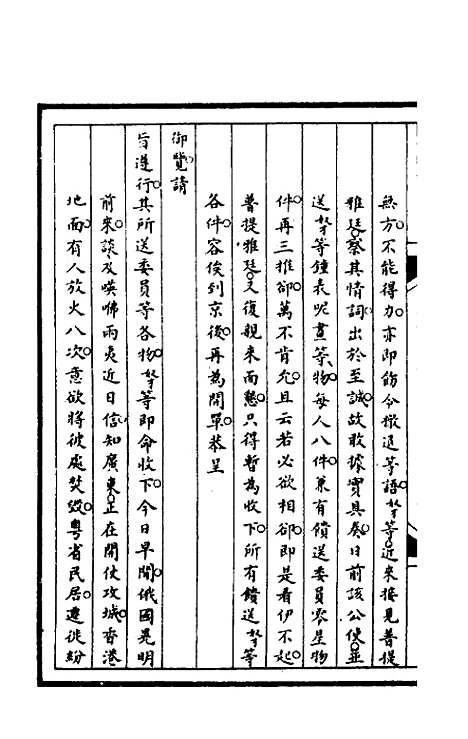 無方不能得力亦即飭令撤退等語奴才等近來接見普提
雅廷察其情詞出於至誠故敢據實具奏日前該公使並
送奴才等鐘表呢畫等物每人八件兼有饋送委員零星物
件再三推卻萬不肯允且云若必欲相卻即是看伊不起
普提雅廷又復親來面懇只得暫為收下所有饋送奴才等
各件容俟到京後再為開單恭呈
御覽請
旨遵行其所送委員等各物奴才等即命收下今日早聞俄國晃明
前來談及𠸄咈兩夷近日信知廣東正在開仗攻城香港
地面有人放火八次意欲將彼處焚燬粵省民居遷徙紛